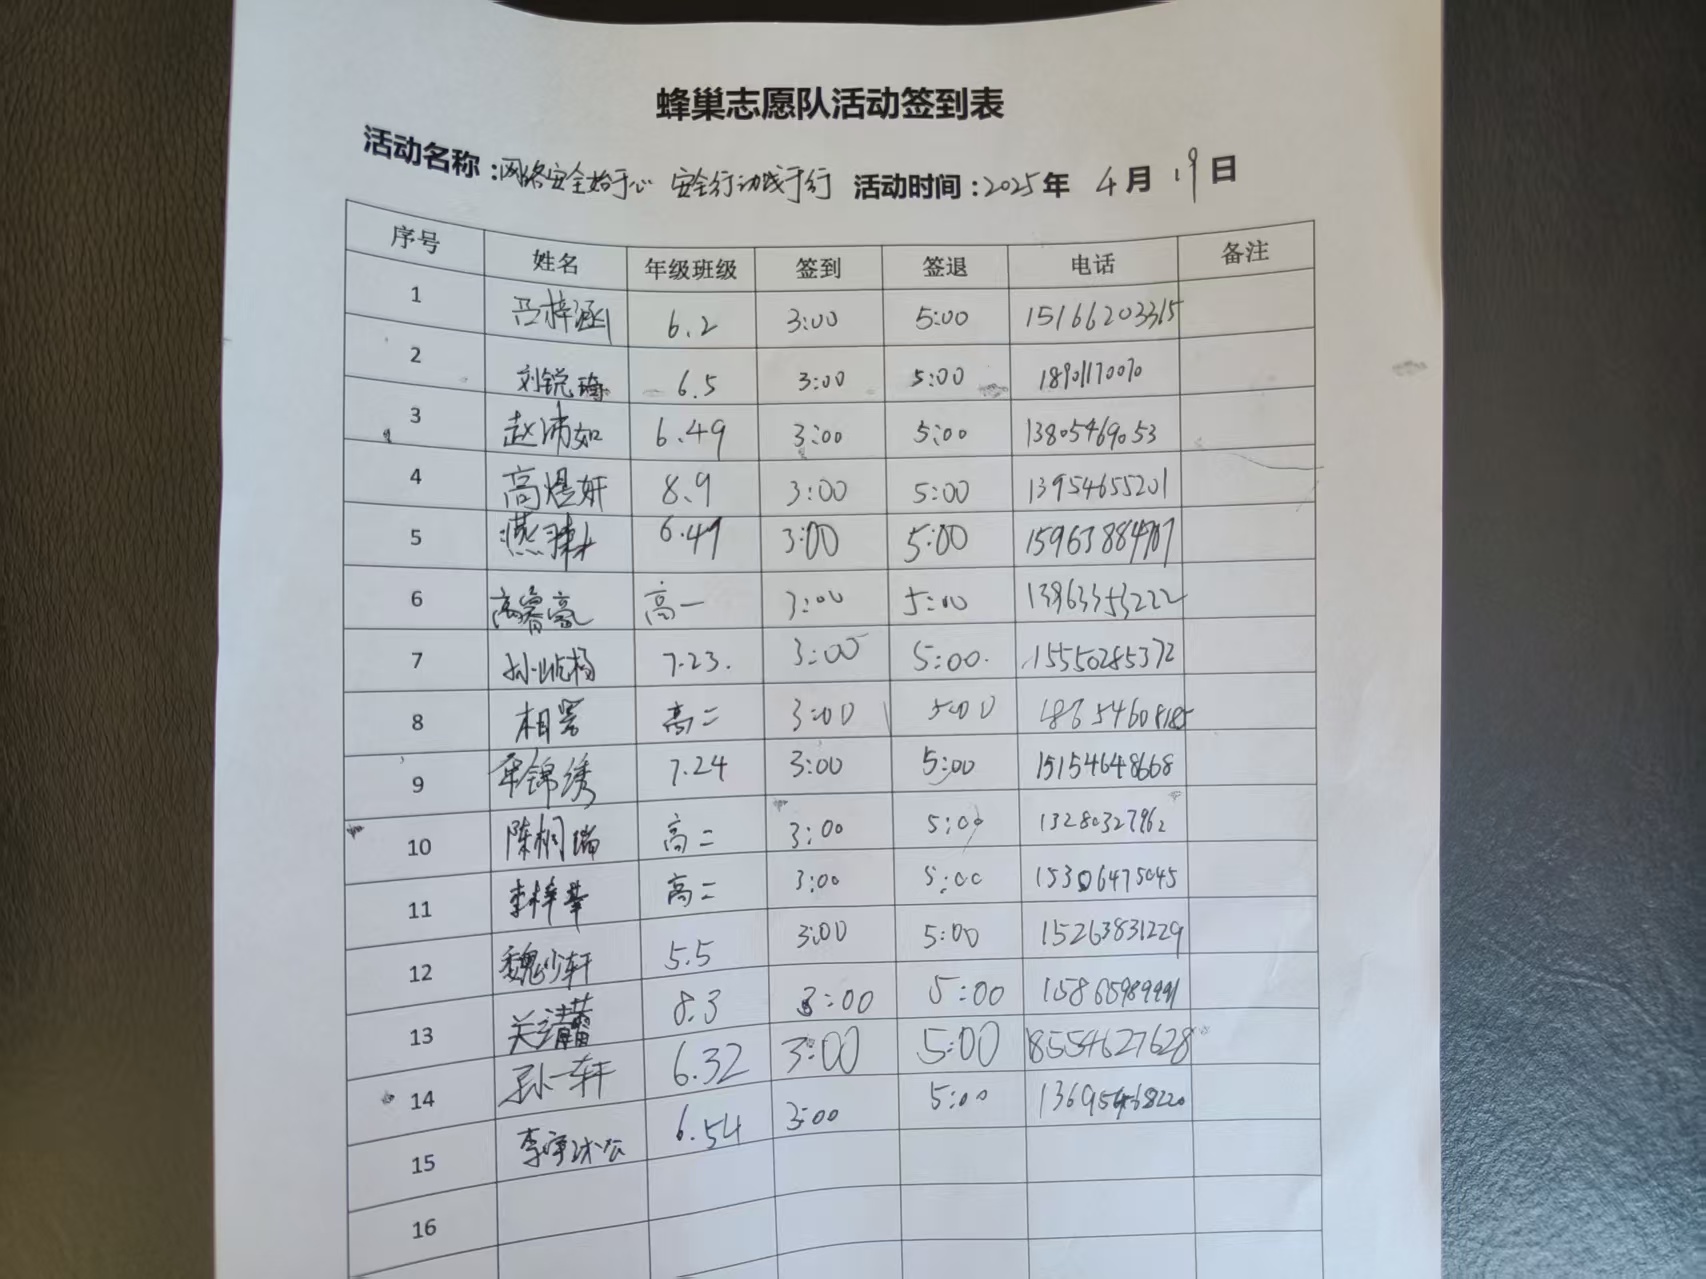 蜂巢志愿队活动签到表
活动名称：网络安全始于心 安全行动践于行 活动时间：2025年 4月 19日
序号 姓名 年级班级 签到 签退 电话 备注
1 梓涵 6.2 3:00 5:00 15166203315
2 刘锐琦 6.5 3:00 5:00 18901170070
3 赵沛如 6.49 3:00 5:00 13805469053
4 高煜妍 8.9 3:00 5:00 13954655201
5 6.49 3:00 5:00
6 高睿亮 高一 3:00 5:00 13963353222
7 孙屹杨 7.23. 3:00 5:00. 15550285372
8 高二 3:00 5:00 18654608185
9 锦绣 7.24 3:00 5:00 15154648668
10 陈桐瑞 高二 3:00 5:00 13280327962
11 李梓 高二 3:00 5:00 15306475045
12 魏少轩 5.5 3:00 5:00 15263831229
13 关 8.3 3:00 5:00
14 孙一轩 6.32 3:00 5:00 18554627628
15 李宇 6.54 3:00 5:00
16